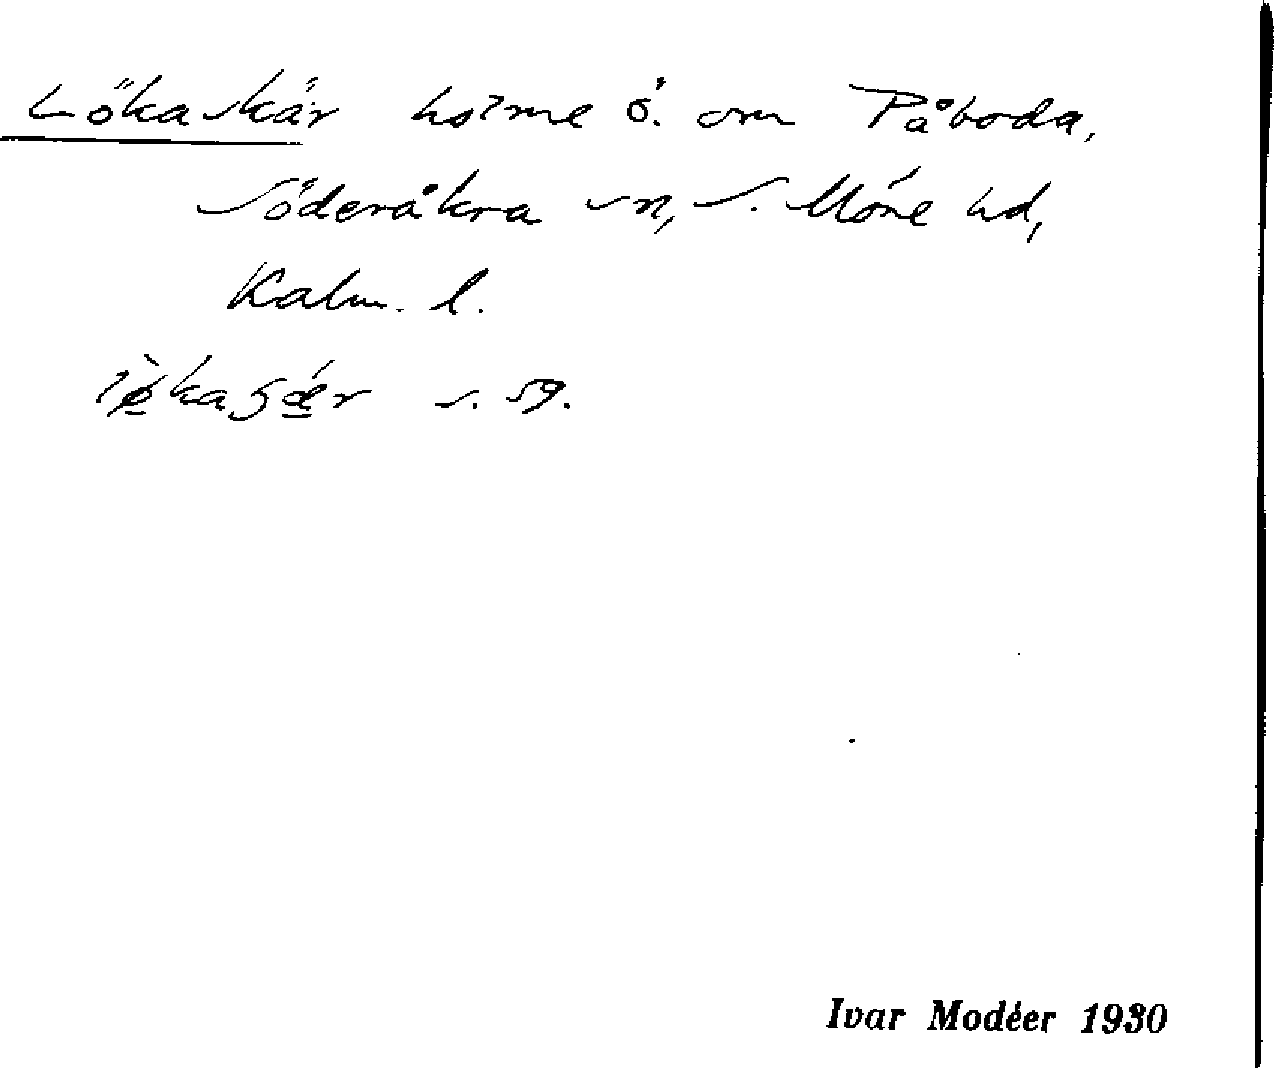 Lökaskär holme ö. om Påboda,
Söderåkra sn, S. Möre hd,
Kalm. l.
s. 59.
Ivar Modéer 1930